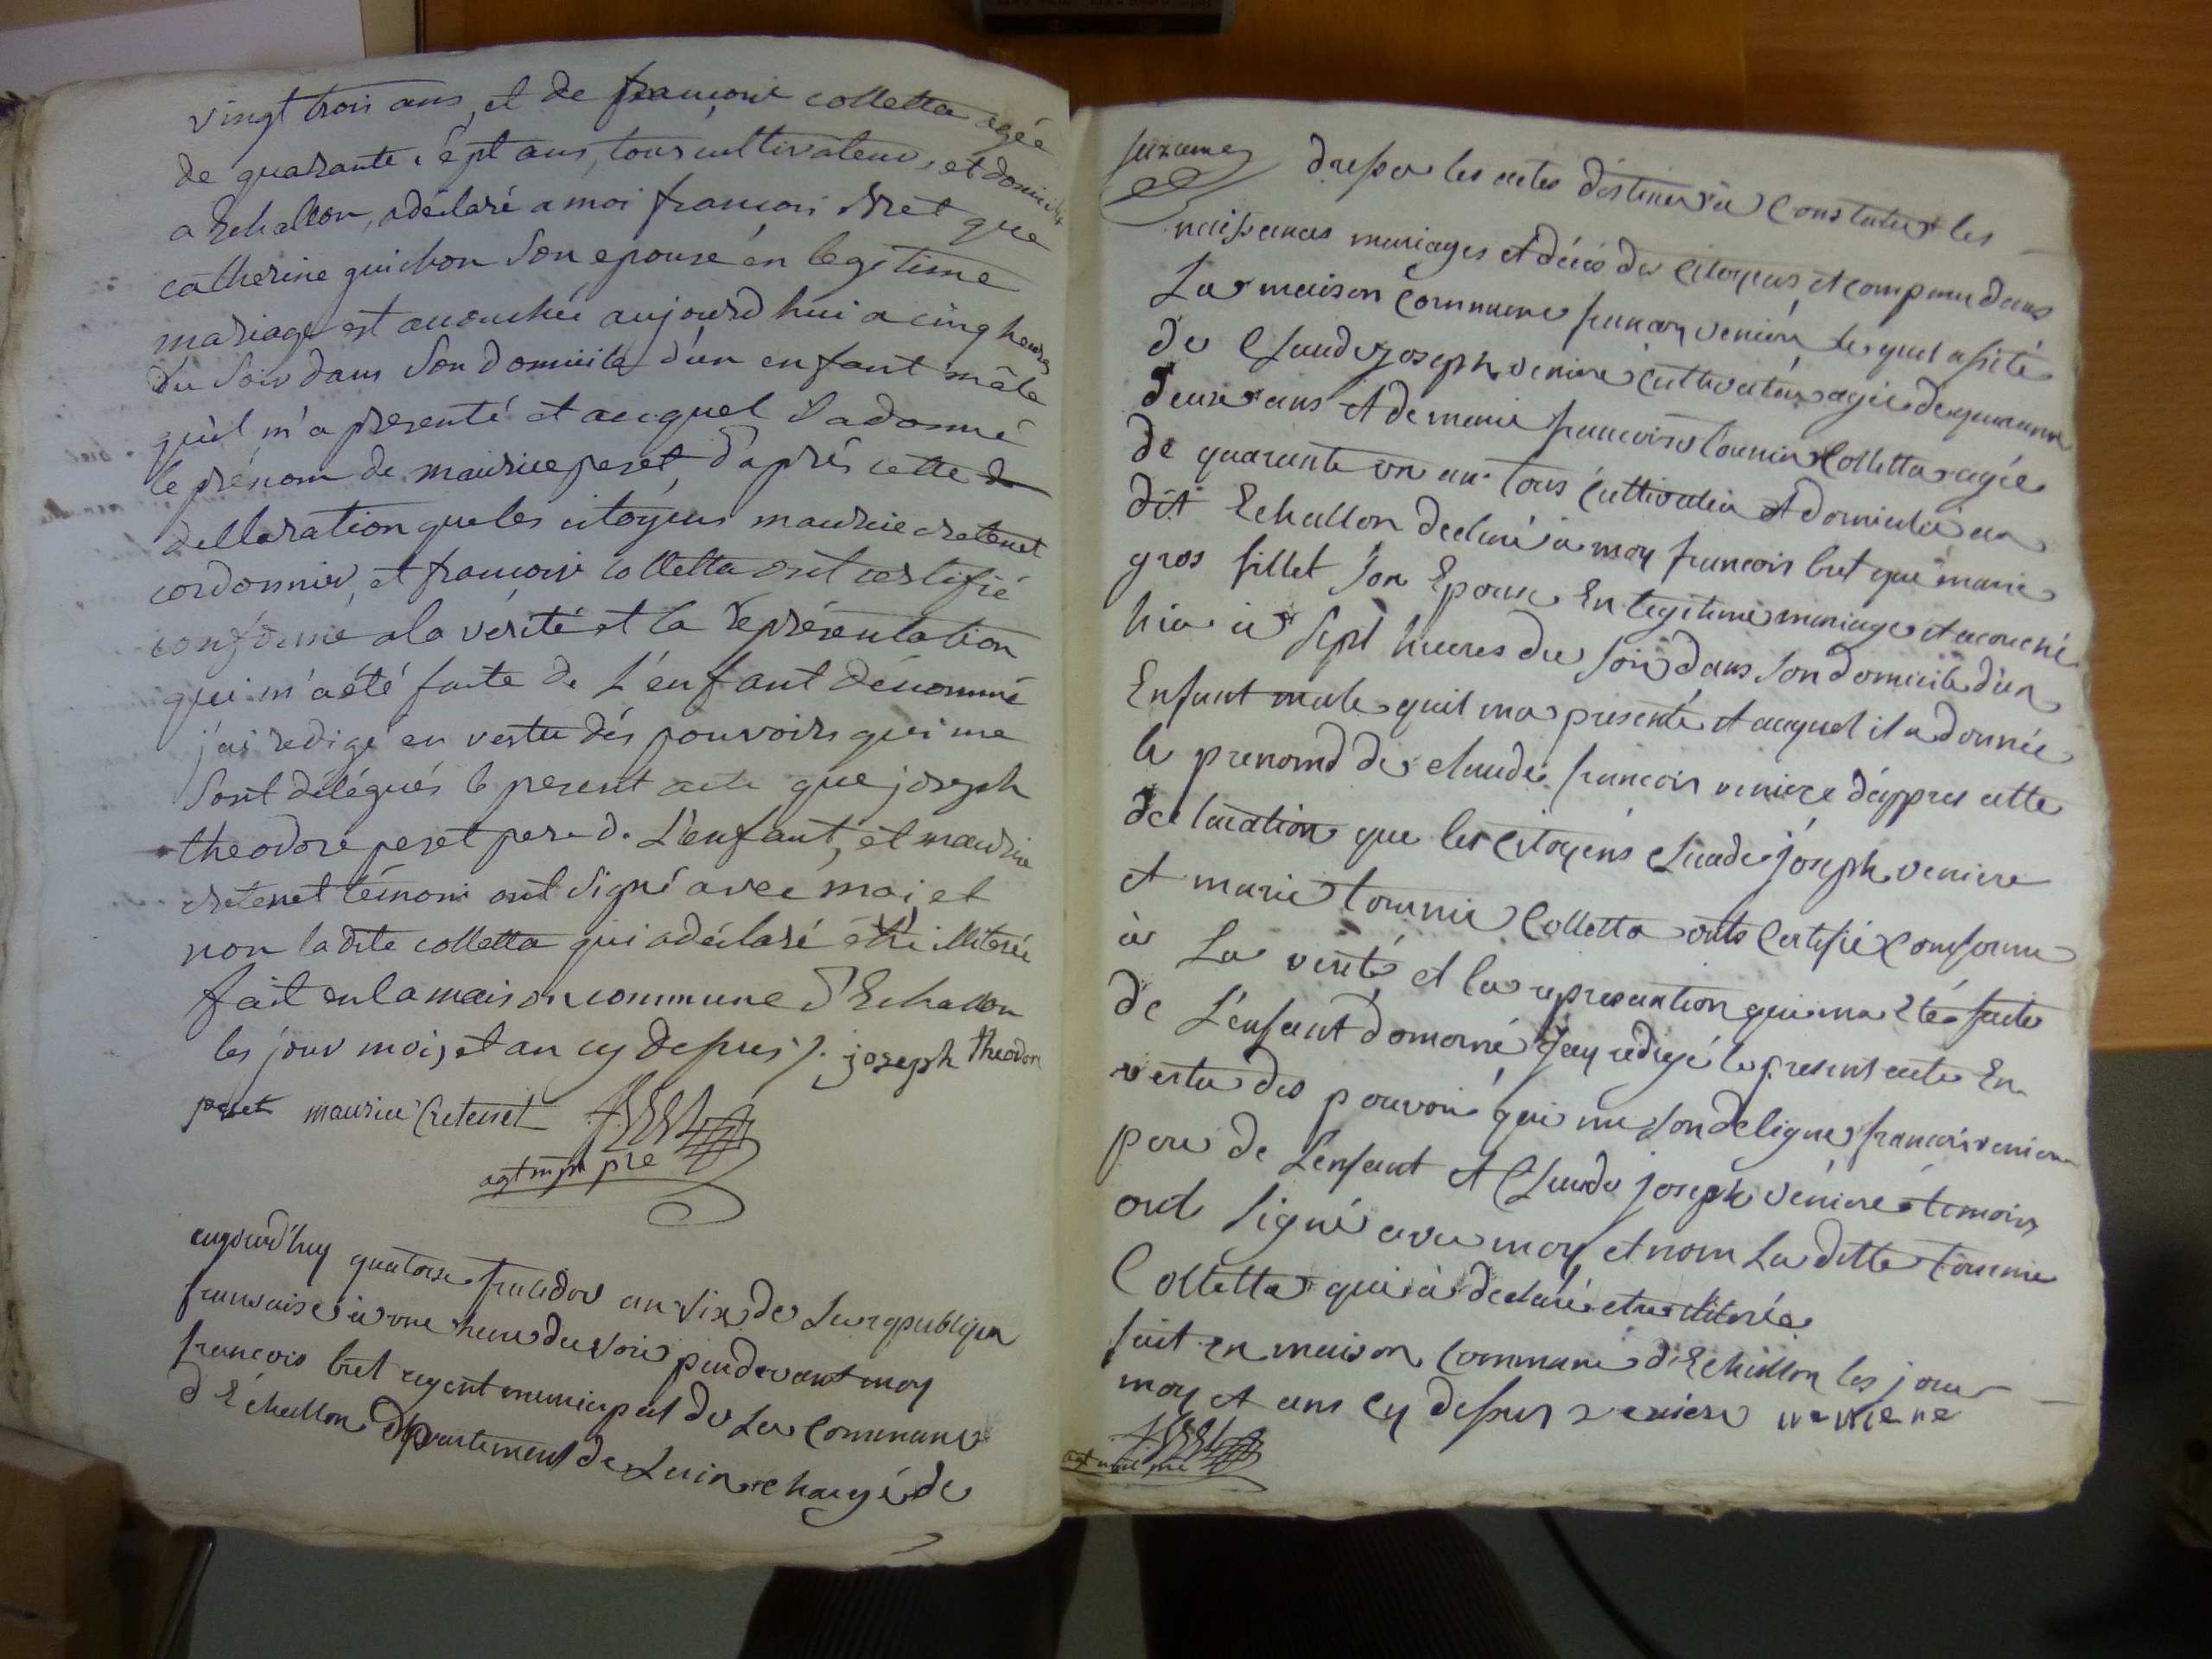 vingt trois ans, et de francoise colletta agée
de quarante sept ans, tous cultivateurs et domicilies
a Echallon, a déclaré a moi francois Bret que
catherine guichon son epouse en legitime
mariage est accouchée aujourd hui a cinq heures
du soir dans son domicile d'un enfant mâle
qu'il m'a presenté et auquel il a donné
le prénom de maurice peret, d'après cette
decllaration que les citoyens maurice cretenet
cordonnier, et francoise colletta ont certifié
conforme a la vérité et la représentation
qui m'a été faite de L'enfant dénommé
j'ai redigé en vertu dés pouvoirs qui me
sont délégués le present acte que joseph
theodore peret pere de L'enfant, et maurice
cretenet témoin ont signé avec moi, et
non la dite colletta qui a déclaré être illiterée
fait en la maison commune d'Echallon
les jour mois, et an cy dessus /. joseph theodore
peret maurice Cretenet
agt mpl pre
aujourd'huy quatorse fructidor an six de La republique
francaise à une heure du soir pardevant moy
francois bret agent municipal de La Commune
d'Échallon département de Lain chargé de
suzanne
dresser les actes déstinés à Constater les
naissances mariages et décés des citoyens et comparu dans
La maison Commune francois veniere le quel assisté
de Claude joseph veniere cultivateur agée de quarante
deux ans et de marie francoise tournier Colletta agée
de quarante un an tous cultivateur et domicilié au
dit Echallon declaré à moy francois bret que marie
gros fillet son Epouse En legitime mariage et acouché
hier à sept heures du soir dans son domicile d'un
Enfant male quil ma presenté et auquel il a donnée
le prenomd de claude francois veniere d'appres cette
declaration que les Citoyéns Claude joseph veniere
et marie tournier Colletta onts Certifié Comforme
à La verité et la representation qui ma été faite
de L'enfant domomé J'ay redigé le present acte En
vertu des pouvoir qui me son deligue francois veniere
pere de L'enfant et Claude joseph véniere témoins
ont signé avec moy et nom La ditte tournie
Colletta qui à declaré etre illiterée
fait en maison Commune d'Echallon les jour
moy et ans cy dessus veniere veniere
agt mpl pre